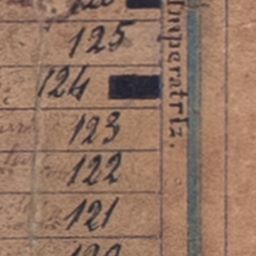 125
124
123
122
121
120
Imperatriz.